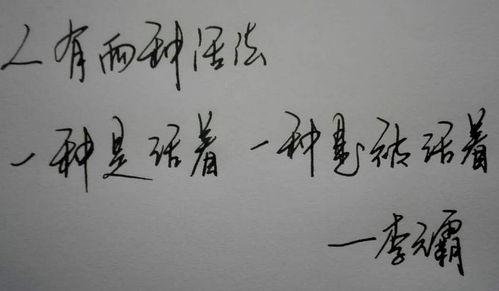 人有两种活法
一种是活着 一种是被活着
—李元霸